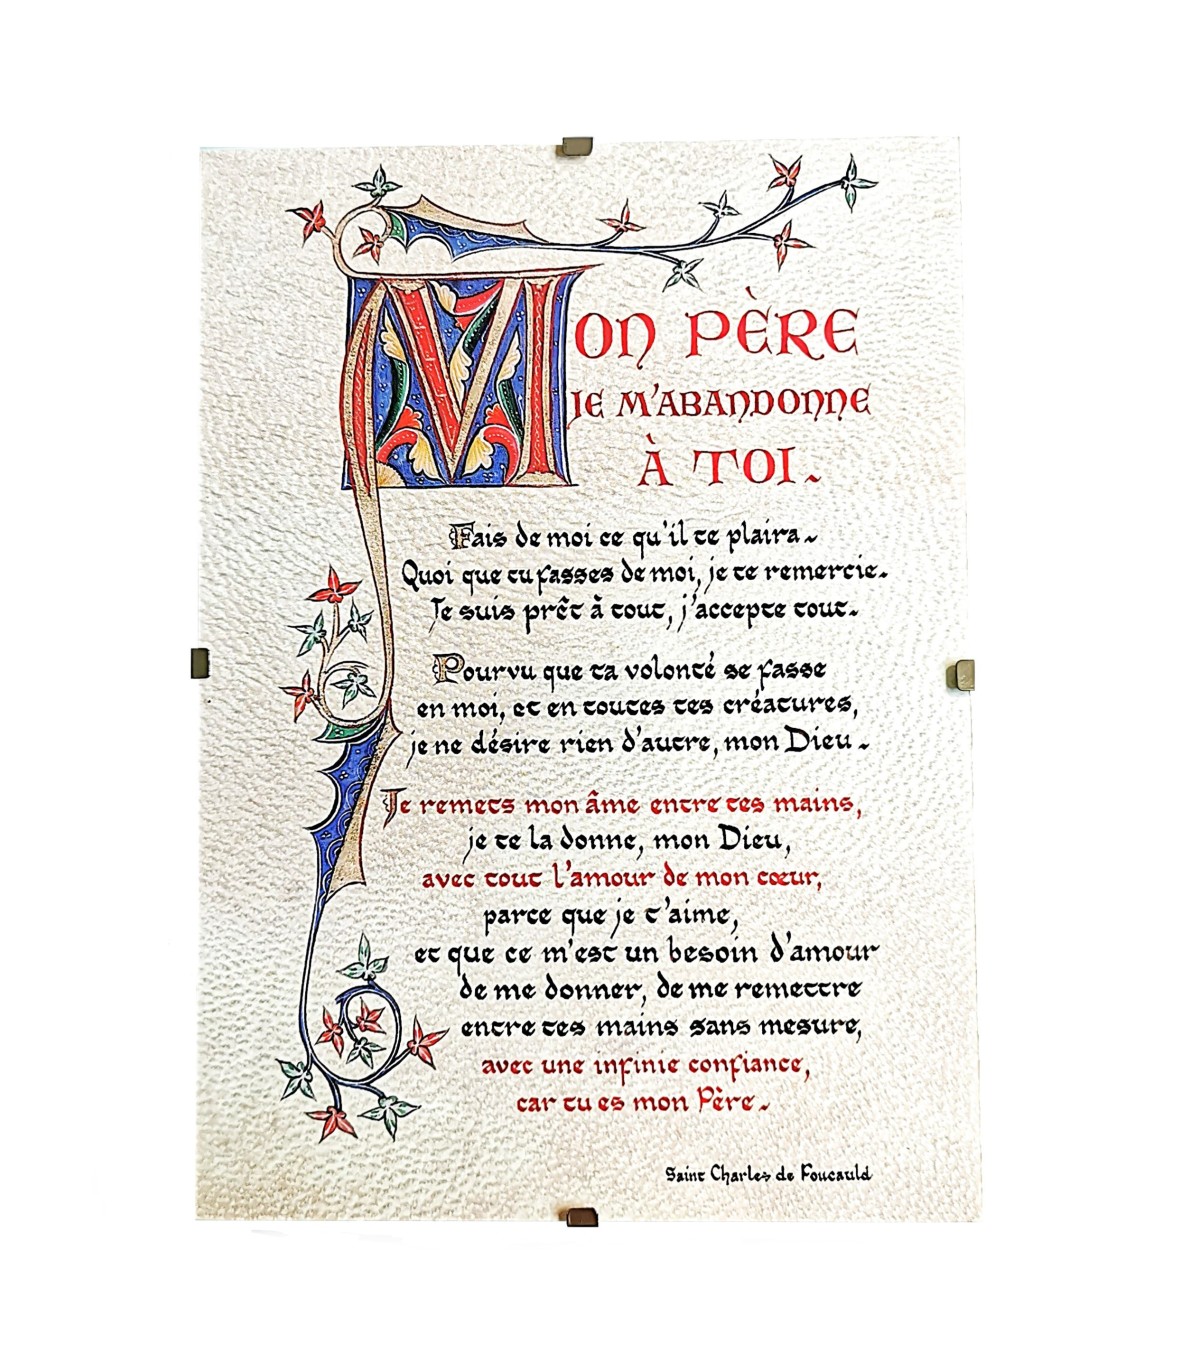 Mon Père
je m'abandonne
à toi~
Fais de moi ce qu'il te plaira~
Quoi que tu fasses de moi, je te remercie.
Je suis prêt à tout, j'accepte tout~
Pourvu que ta volonté se fasse
en moi, et en toutes tes créatures,
je ne désire rien d'autre, mon Dieu~
Je remets mon âme entre tes mains,
je te la donne, mon Dieu,
avec tout l'amour de mon cœur,
parce que je t'aime,
et que ce m'est un besoin d'amour
de me donner, de me remettre
entre tes mains sans mesure,
avec une infinie confiance,
car tu es mon Père~
Saint Charles de Foucauld